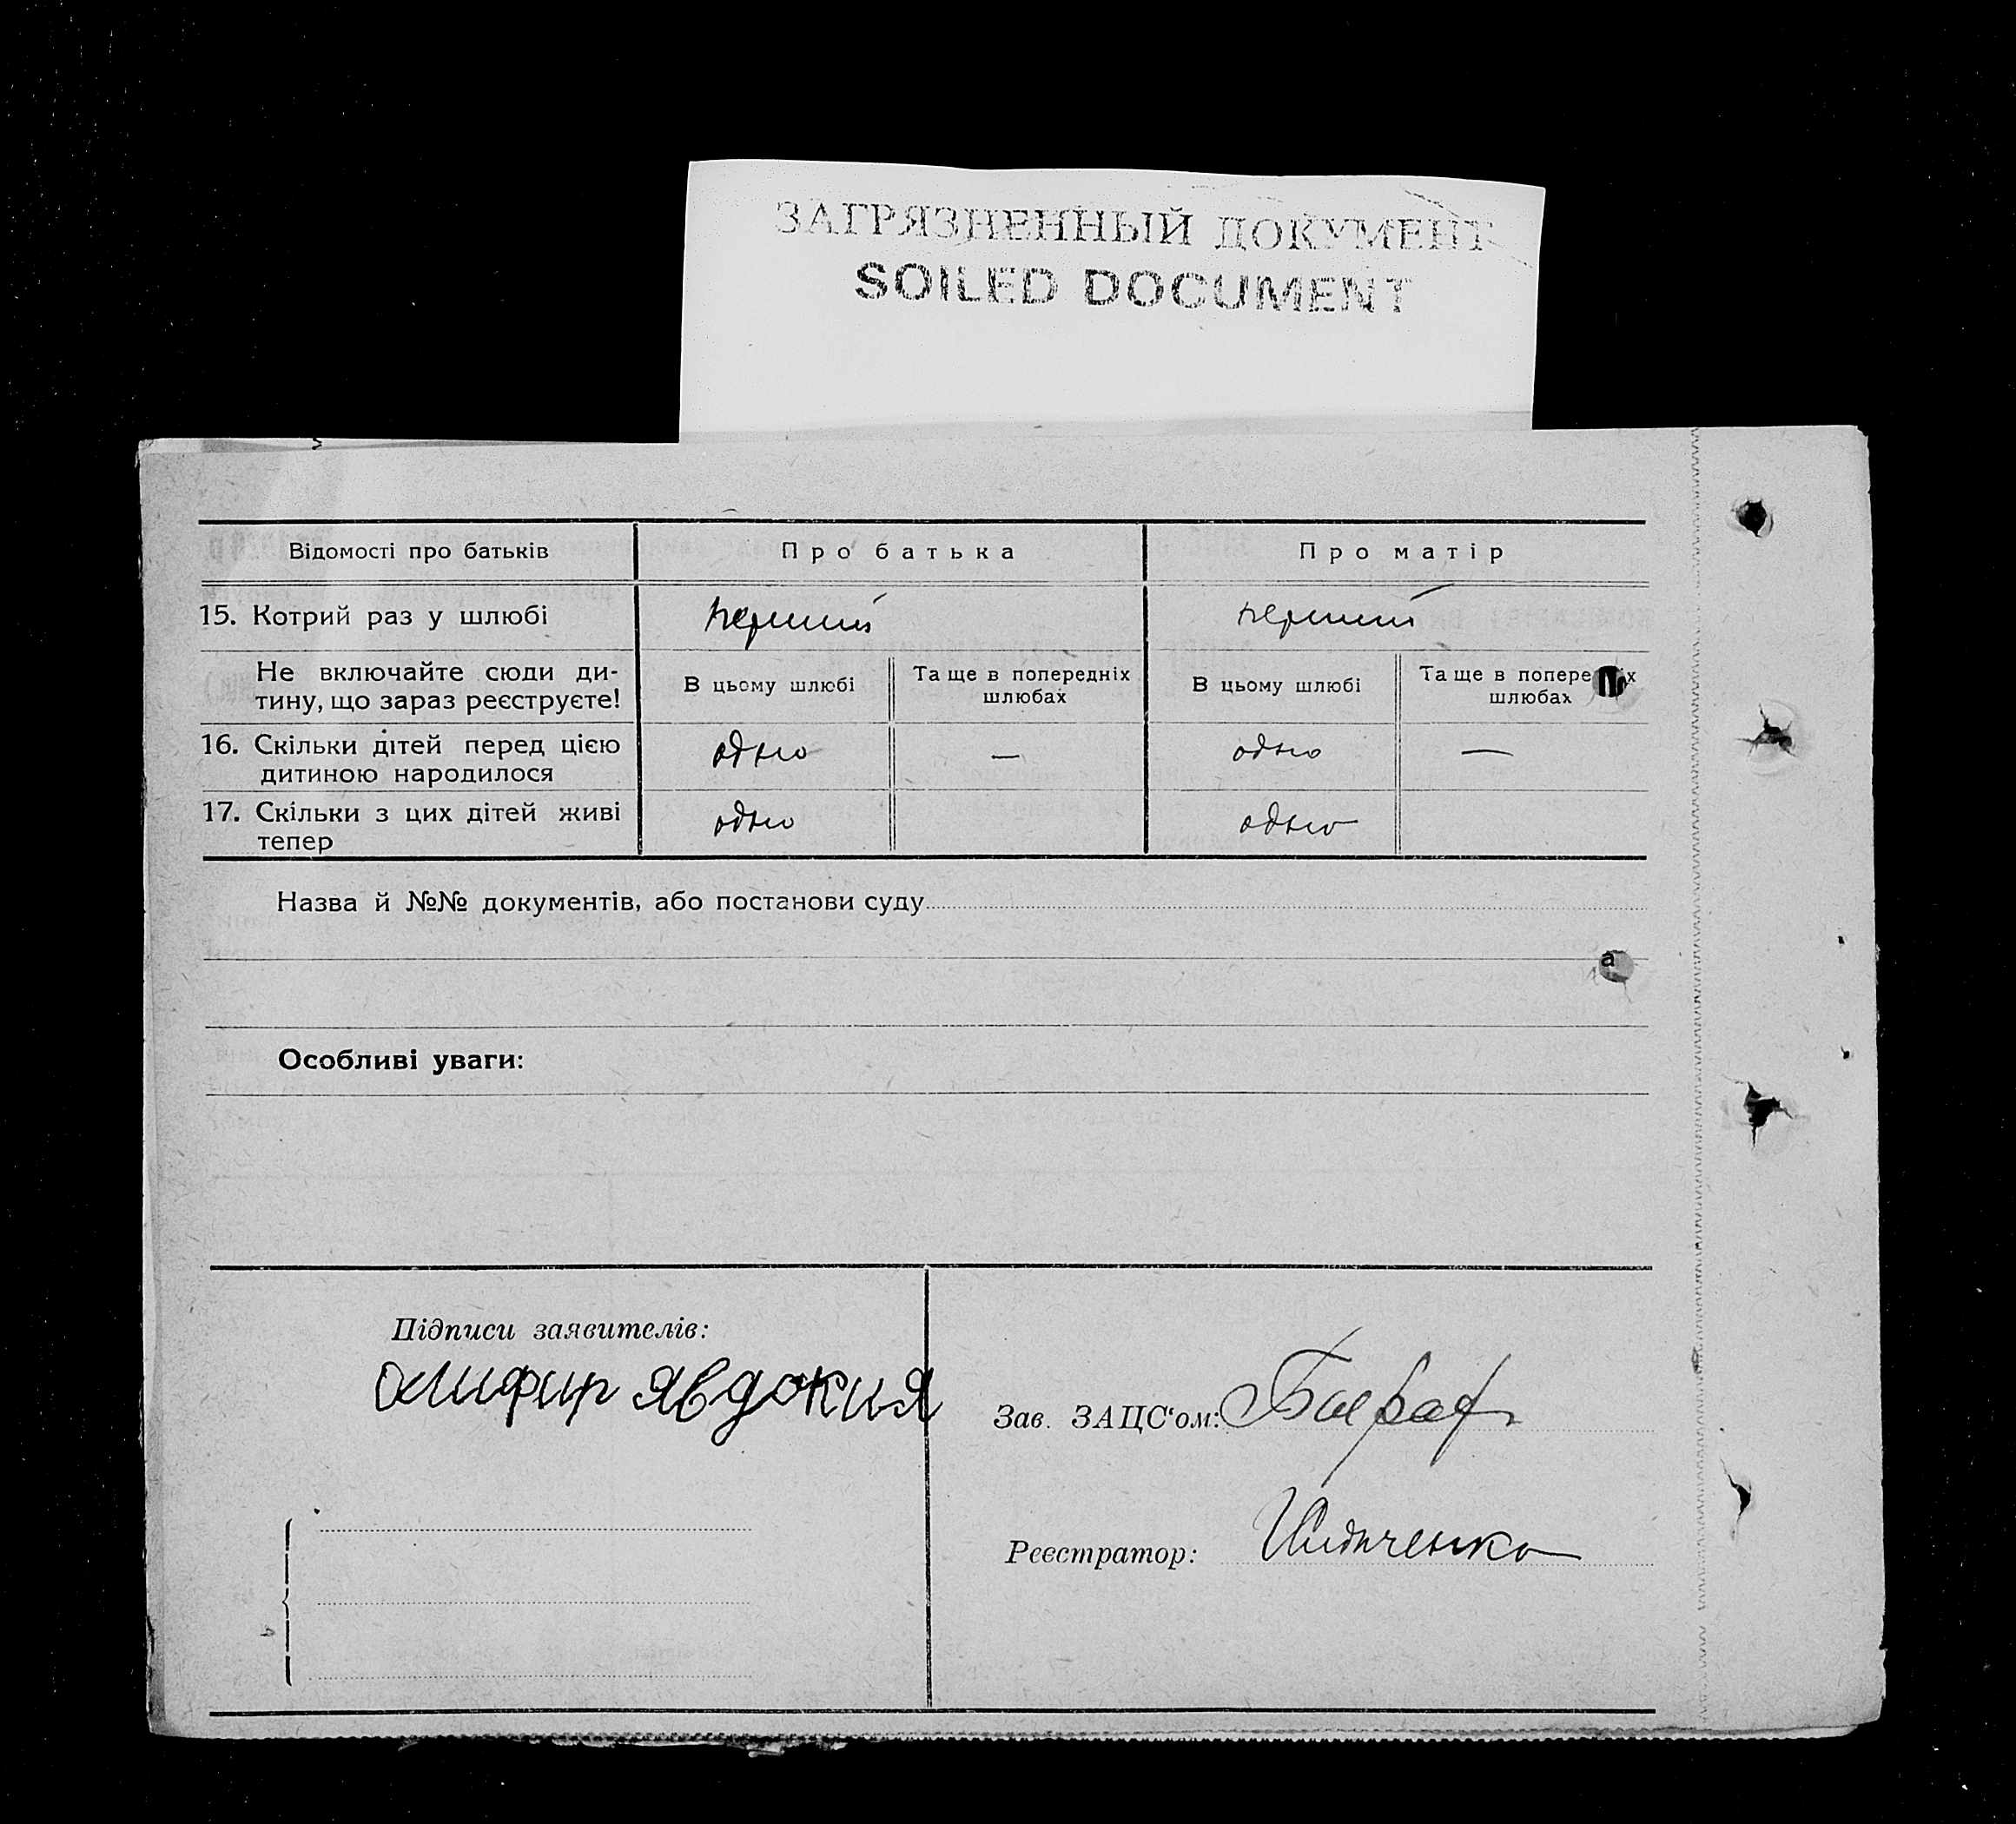 ЗАГРЯЗНЕННЫЙ ДОКУМЕНТ
SOILED DOCUMENT
Відомості про батьків Про батька Про матір
15. Котрий раз у шлюбі перший перший
Не включайте сюди ди-
тину, що зараз реєструєте!
В цьому шлюбі Та ще в попередніх В цьому шлюбі Та ще в попере х
шлюбах шлюбах
16. Скільки дітей перед цією
дитиною народилося
одно — одно —
17. Скільки з цих дітей живі
тепер
одно одно
Назва й №№ документів, або постанови суду
а
Особливі уваги:
Підписи заявителів:
явдокия
Зав. ЗАЦС'ом:
Реєстратор: